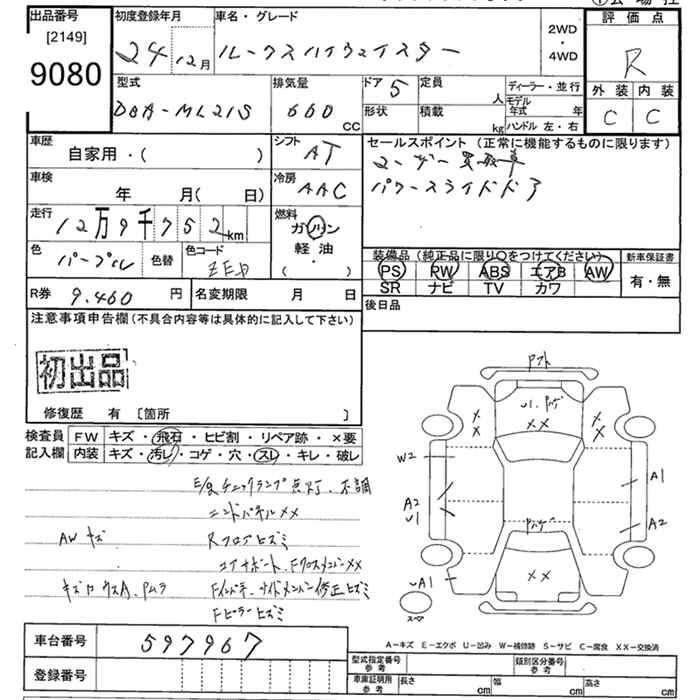 出品番号 初度登録年月 車名・グレード 2WD・4WD 評価点
[2149]
9080
24 12月 ルークスハイウェイスター R
型式 排気量 ドア 5 定員 人 ディーラー・並行 外装 内装
DBA-ML21S 660 CC 形状 積載 kg モデル年式 年 C C
ハンドル 左・右
車歴 シフト セールスポイント (正常に機能するものに限ります)
自家用・( ) AT ユーザー買取車
車検 冷房 パワースライドドア
年 月( 日) AAC
走行 燃料
12万9千752km ガソリン
軽油・
( )
色 パープル 色替 色コード ZEP
装備品 (純正品に限り○をつけてください) 新車保証書
PS PW ABS エアB AW 有・無
SR ナビ TV カワ
R券 9.460 円 名変期限 月 日 後日品
注意事項申告欄 (不具合内容等は具体的に記入して下さい)
初出品
修復歴 有 [箇所 ]
検査員記入欄 FW キズ・飛石・ヒビ割・リペア跡・×要
内装 キズ・汚レ・コゲ・穴・スレ・キレ・破レ
E/gチェックランプ点灯、不調
エンドパネルXX
AWキズ Rフロアヒズミ
コアサポート、FクロスメンバーXX
Fインパネ、サイドメンバー修正ヒズミ
Fピラーヒズミ
XX
XX
W2
A2
U1
A1
A2
A1
スペア
A-キズ E-エクボ U-凹み W-補修跡 S-サビ C-腐食 XX-交換済
車台番号 597967
登録番号
型式指定番号 参考 類別区分番号 参考
車庫証明用 参考 長さ cm 幅 cm 高さ cm